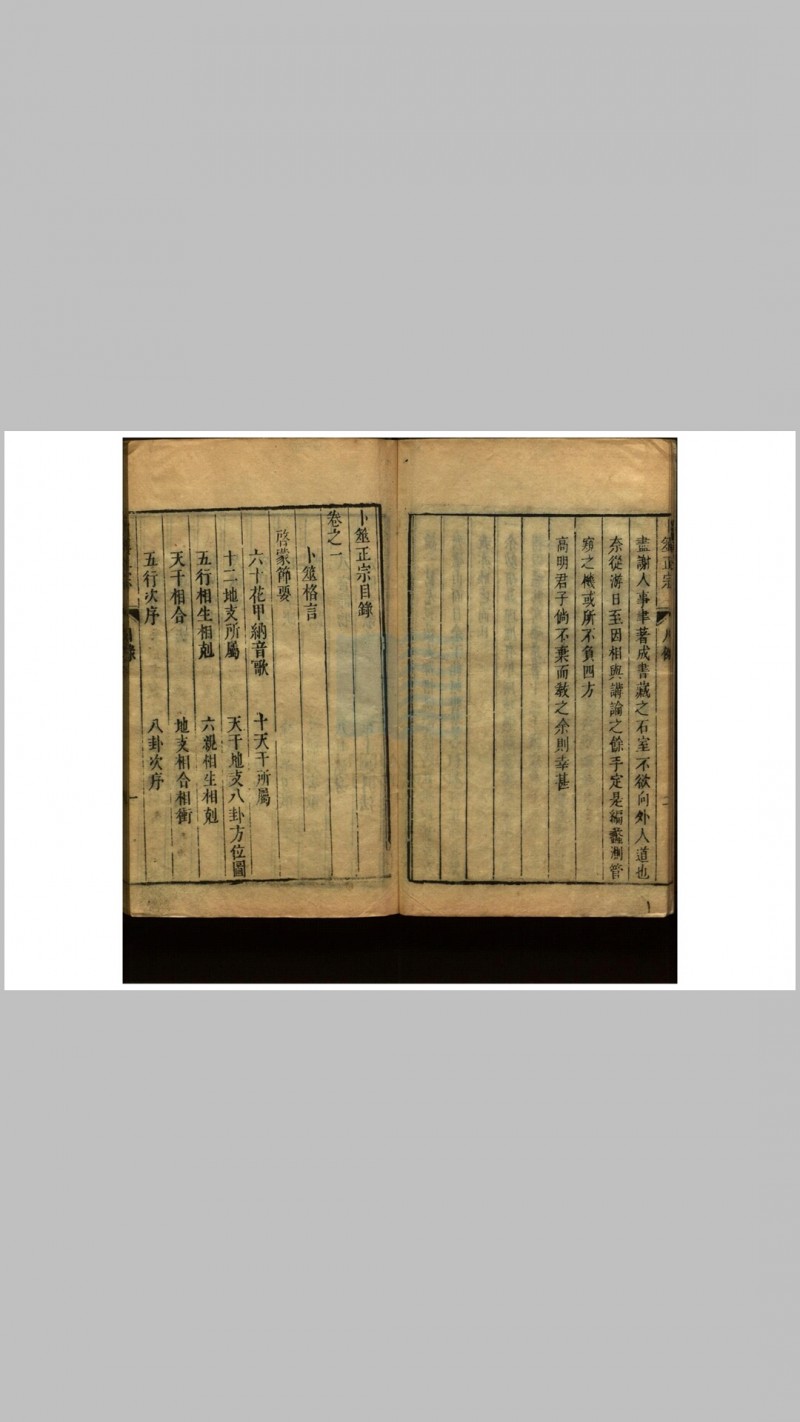 卜筮正宗
盡謝人事聿著成書藏之石室不欲向外人道也
奈從游日至因相與講論之餘手定是編蠡測管
窺之機或所不負四方
高明君子倘不棄而教之余則幸甚
卜筮正宗目錄
卷之一
卜筮格言
啓蒙節要
六十花甲納音歌 十天干所屬
十二地支所屬 天干地支八卦方位圖
五行相生相剋 六親相生相剋
天干相合 地支相合相衝
五行次序 八卦次序
目錄 一